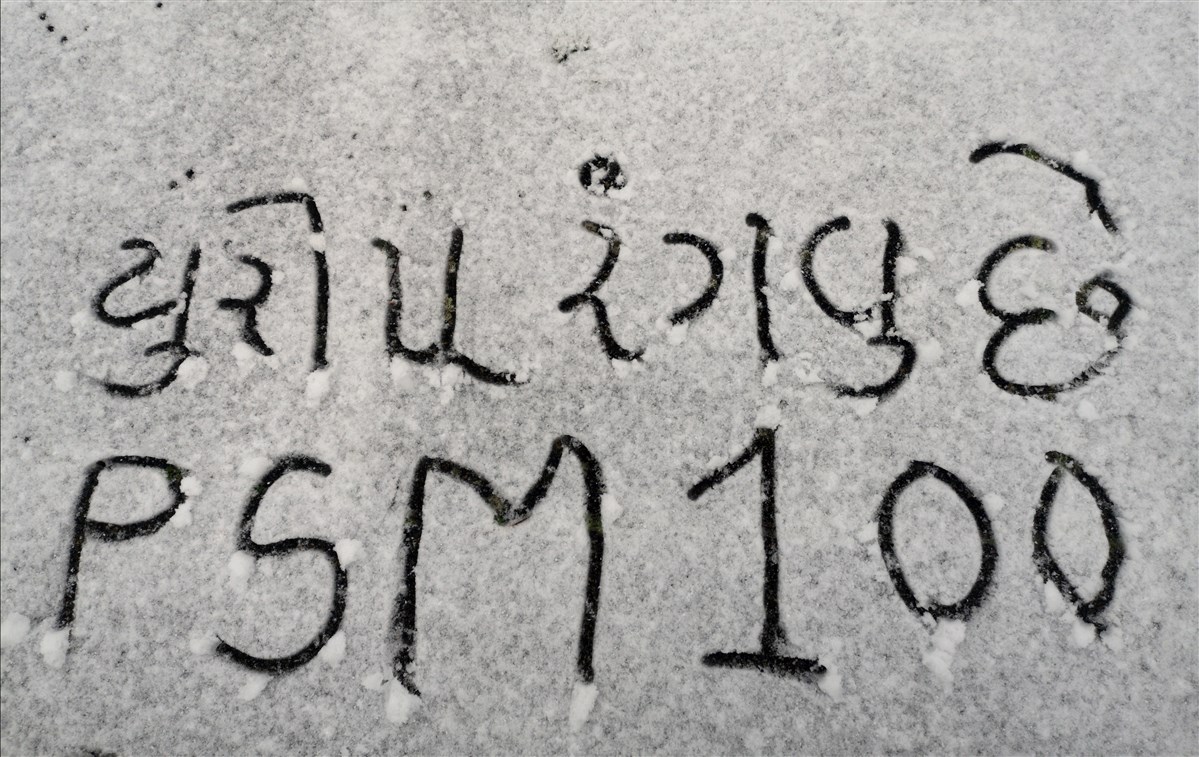 યુરોપ રંગવુ છે
PSM 100